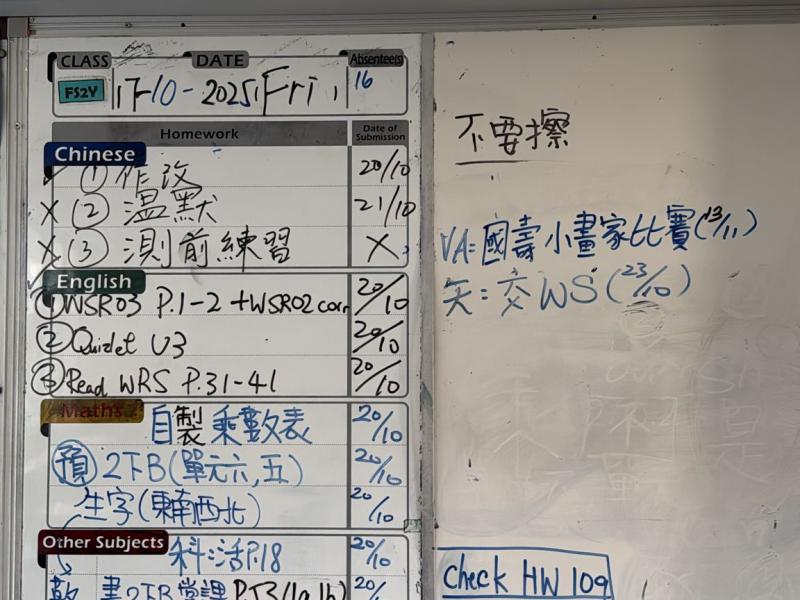 CLASS DATE Absentee(s)
FS2Y 17-10-2025 Fri 16
Homework Date of Submission
Chinese
✓ ① 作改 20/10
X ② 溫默 21/10
X ③ 測前練習 X
English
① WSR03 P.1-2 + WSR02 corr 20/10
② Quizlet U3 20/10
③ Read WRS P.31-41 20/10
Maths
自製乘數表 20/10
預 2下B(單元六,五) 20/10
生字(東南西北) 20/10
Other Subjects
科:活P.18 20/10
數 書2下B堂課 20/
不要擦
VA:國壽小畫家比賽(13/11)
交WS(23/10)
check HW 109